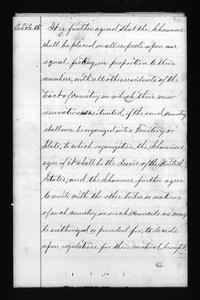 Article 15. It is further agreed that the Shawnees
shall be placed in all respects upon an
equal footing, in proportion to their
numbers, with all other residents of the
tract of country in which their new
reservation is situated, if the said country
shall ever be organized into a Territory or
State, to which organization, the Shawnees
agree if it shall be the desire of the United
States, and the Shawnees further agree
to unite with the other tribes or nations
of such country in such councils as may
be authorized or provided for, to decide
upon regulations for their mutual benefit,